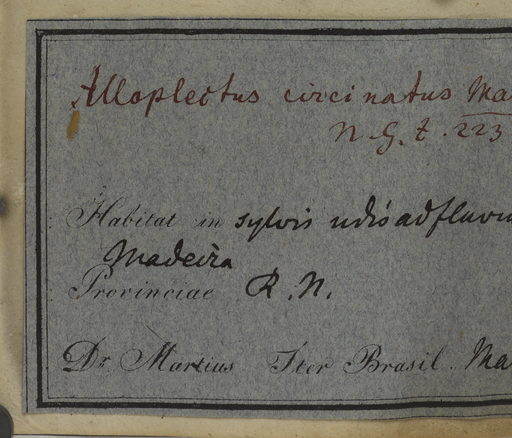 Alloplectus circinatus Ma
N. G. t. 223
Habitat in sylvis udis ad fluvi
Madeira
Provinciae R. N.
Dr. Martius Iter Brasil. Ma